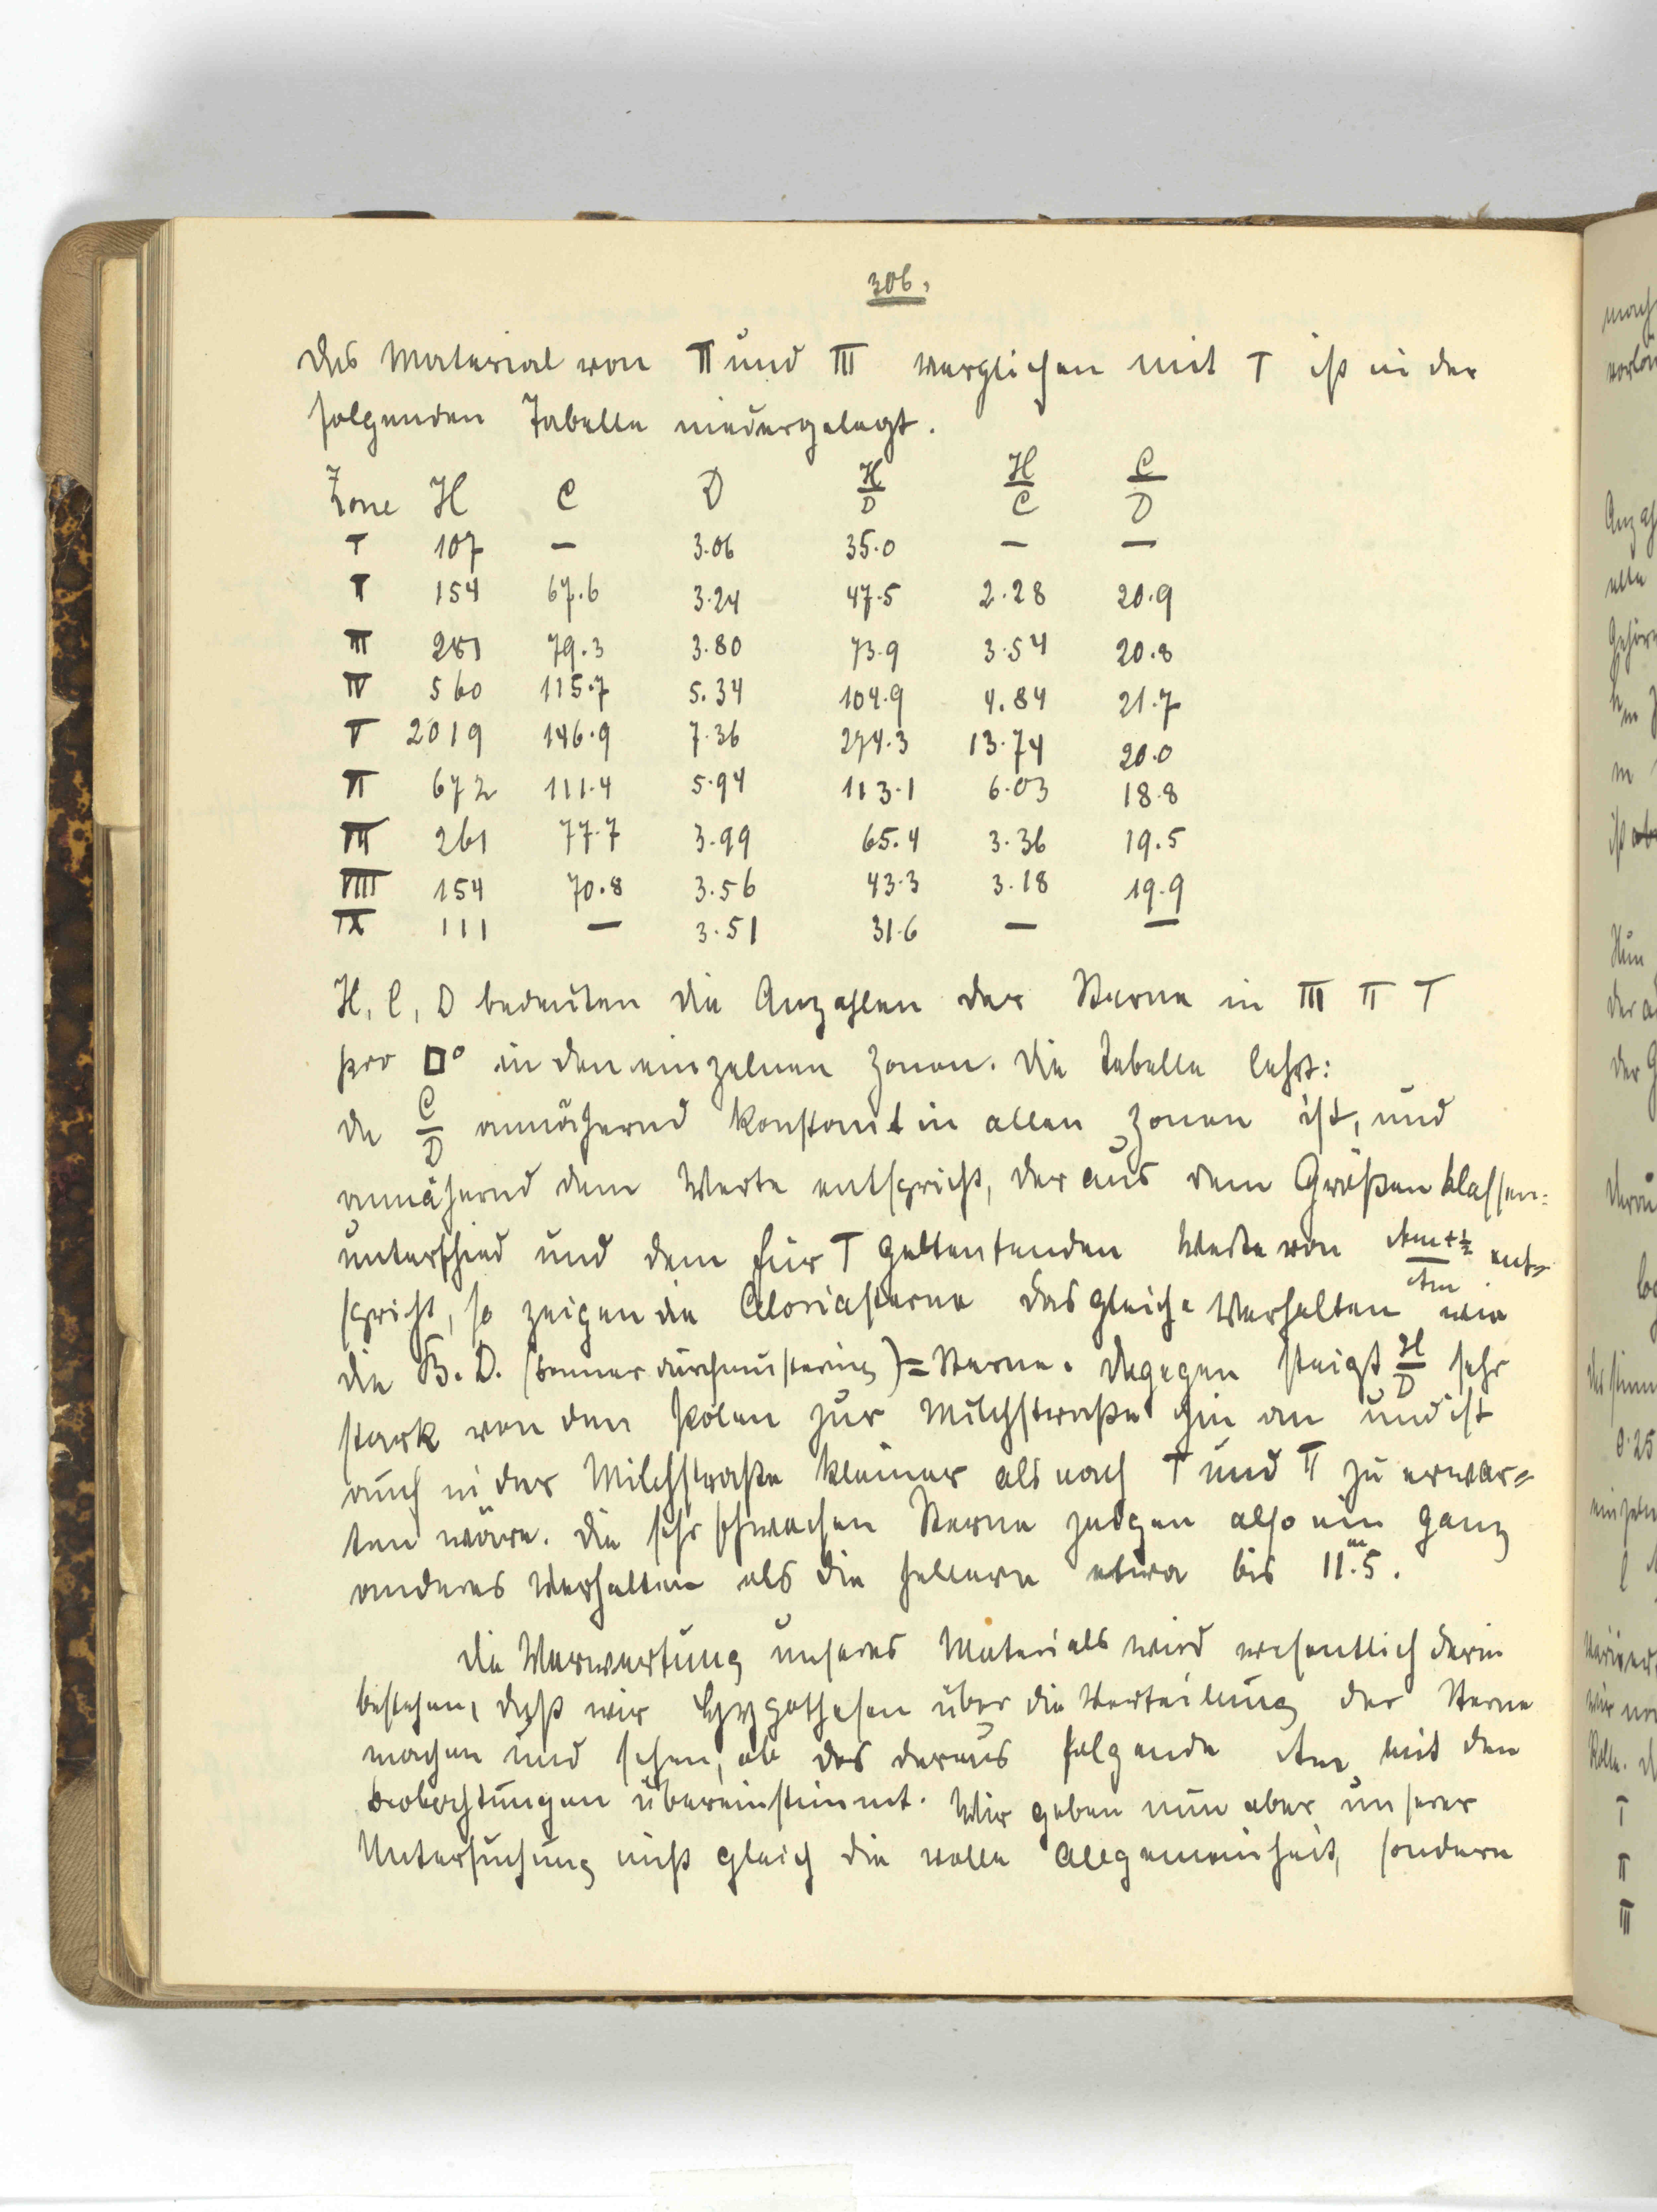 306.
Das Material von II und III verglichen mit I ist in der
folgenden Tabelle niedergelegt.
Zone H C D H/D H/C C/D
I 107 — 3.06 35.0 — —
II 154 67.6 3.24 47.5 2.28 20.9
III 281 79.3 3.80 73.9 3.54 20.8
IV 560 115.7 5.34 104.9 4.84 21.7
V 2019 146.9 7.36 274.3 13.74 20.0
VI 672 111.4 5.94 113.1 6.03 18.8
VII 261 77.7 3.99 65.4 3.36 19.5
VIII 154 70.8 3.56 43.3 3.18 19.9
IX 111 — 3.51 31.6 — —
H, C, D bedeuten die Anzahlen der Sterne in III II I
pro □° in den einzelnen Zonen. Die Tabelle lehrt:
da C/D annähernd konstant in allen Zonen ist, und
annähernd dem Werte entspricht, der aus dem Größenklassen-
unterschied und dem für I geltenden Werte von Am+½/Am ent-
spricht, so zeigen die Celoriasterne das gleiche Verhalten wie
die B. D. (Bonner Durchmusterung)=Sterne. Dagegen steigt H/D sehr
stark von den Polen zur Milchstraße hin an und ist
auch in der Milchstraße kleiner als nach I und II zu erwar-
ten wäre. Die sehr schwachen Sterne zeigen also ein ganz
anderes Verhalten als die hellern etwa bis 11.ᵐ5.
Die Verwertung unseres Materials wird wesentlich darin
bestehen, daß wir Hypothesen über die Verteilung der Sterne
machen und sehen, ob das daraus folgende Am mit den
Beobachtungen übereinstimmt. Wir geben nun aber unserer
Untersuchung nicht gleich die volle Allgemeinheit, sondern